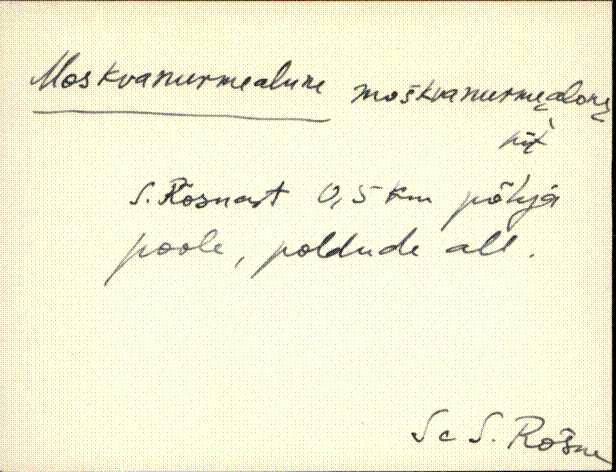 Moskvanurmealune moškvanurmęalonę
S. Rõsnast 0,5 km põhja
poole, poldude all.
Se S. Rõšna